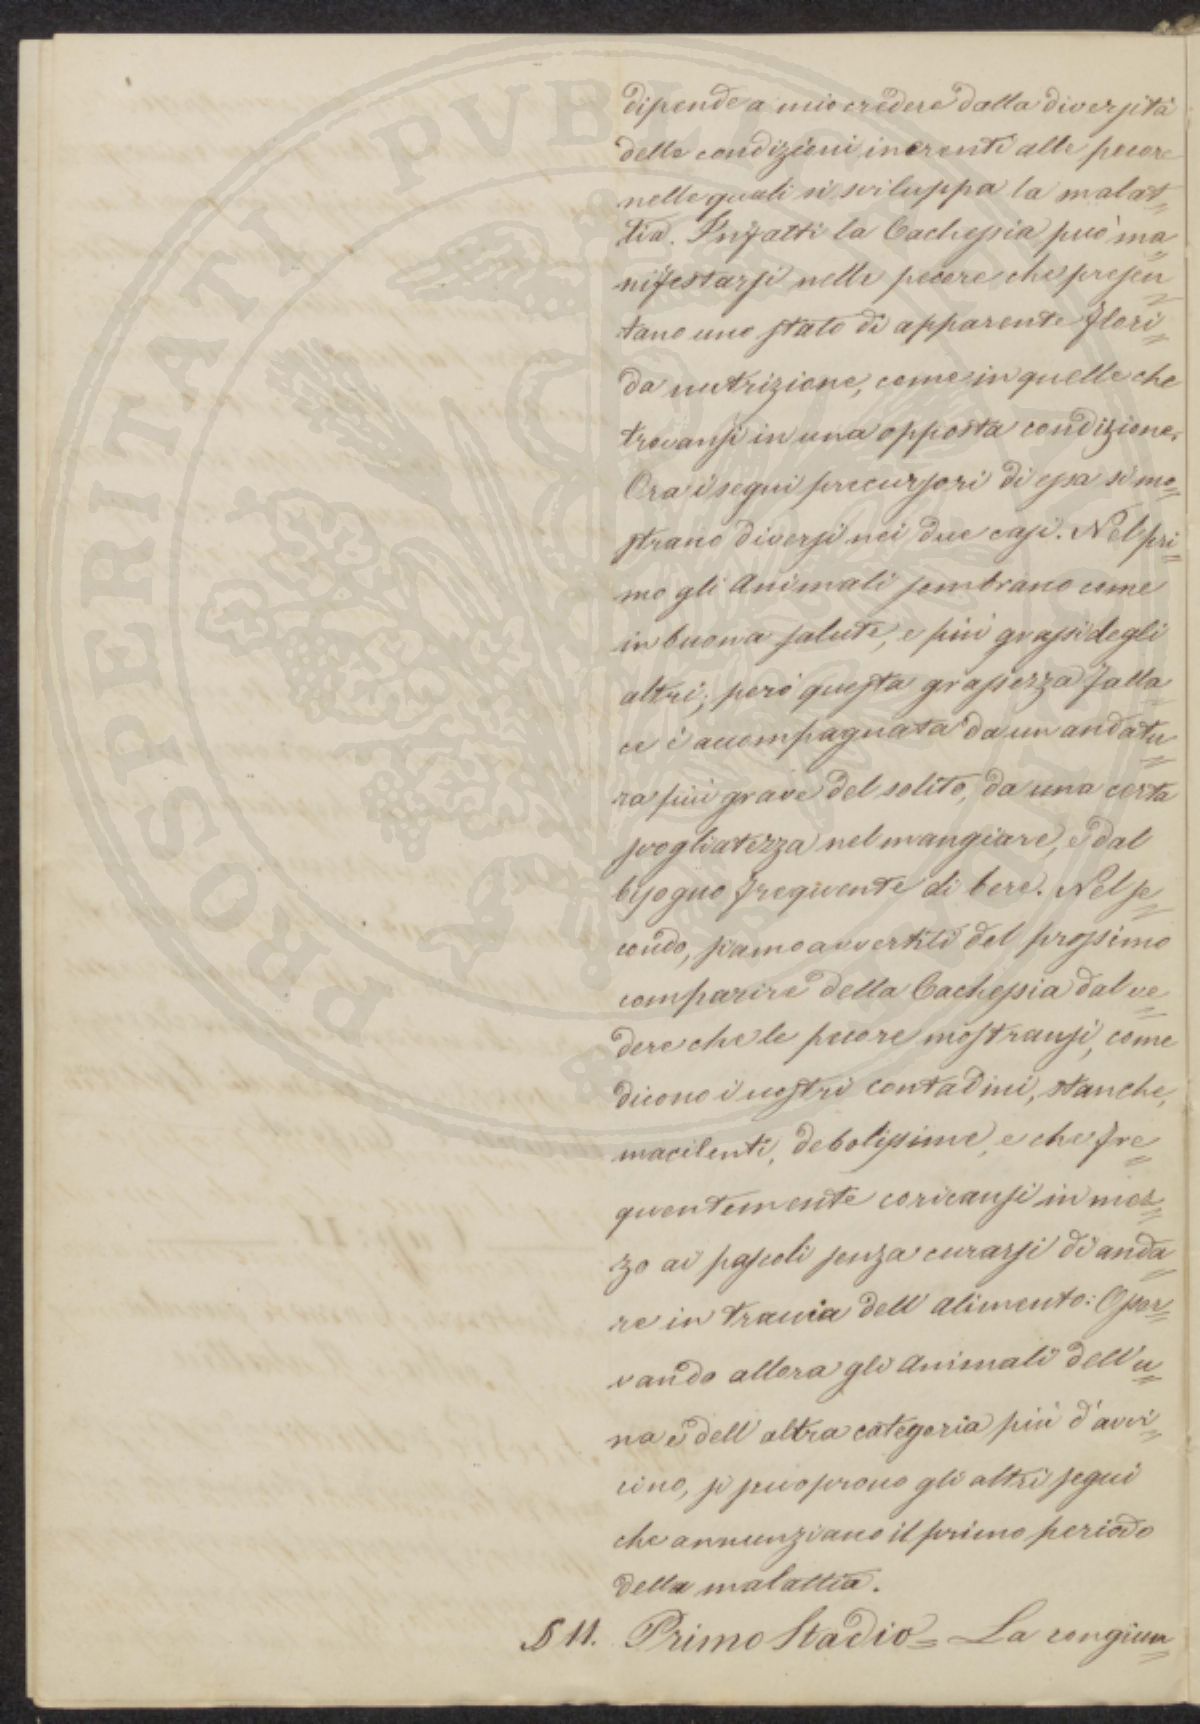 dipende a mio credere dalla diversità
delle condizioni inerenti alle pecore
nelle quali si sviluppa la malat=
tia. Infatti la Cachessia può ma=
nifestarsi nelle pecore che presen=
tano uno stato di apparente flori=
da nutrizione, come in quelle che
trovansi in una opposta condizione.
Ora i segni precursori di essa si mo=
strano diversi nei due casi. Nel pri=
mo gli Animali sembrano come
in buona salute, e più grassi degli
altri; però questa grassezza falla=
ce è accompagnata da un andatu=
ra più grave del solito, da una certa
svogliatezza nel mangiare, e dal
bisogno frequente di bere. Nel se=
condo, siamo avvertiti del prossimo
comparire della Cachessia dal ve=
dere che le pecore mostransi, come
dicono i nostri contadini, stanche,
macilenti, debolissime, e che fre=
quentemente coricansi in mez=
zo ai pascoli senza curarsi di anda=
re in traccia dell'alimento: Osser=
vando allora gli Animali dell'u=
na e dell'altra categoria più d'avvi=
cino, si scoprono gli altri segni
che annunziano il primo periodo
della malattia.
§ 11. Primo Stadio = La congiun=
PROSPERITATI PVBLICAE